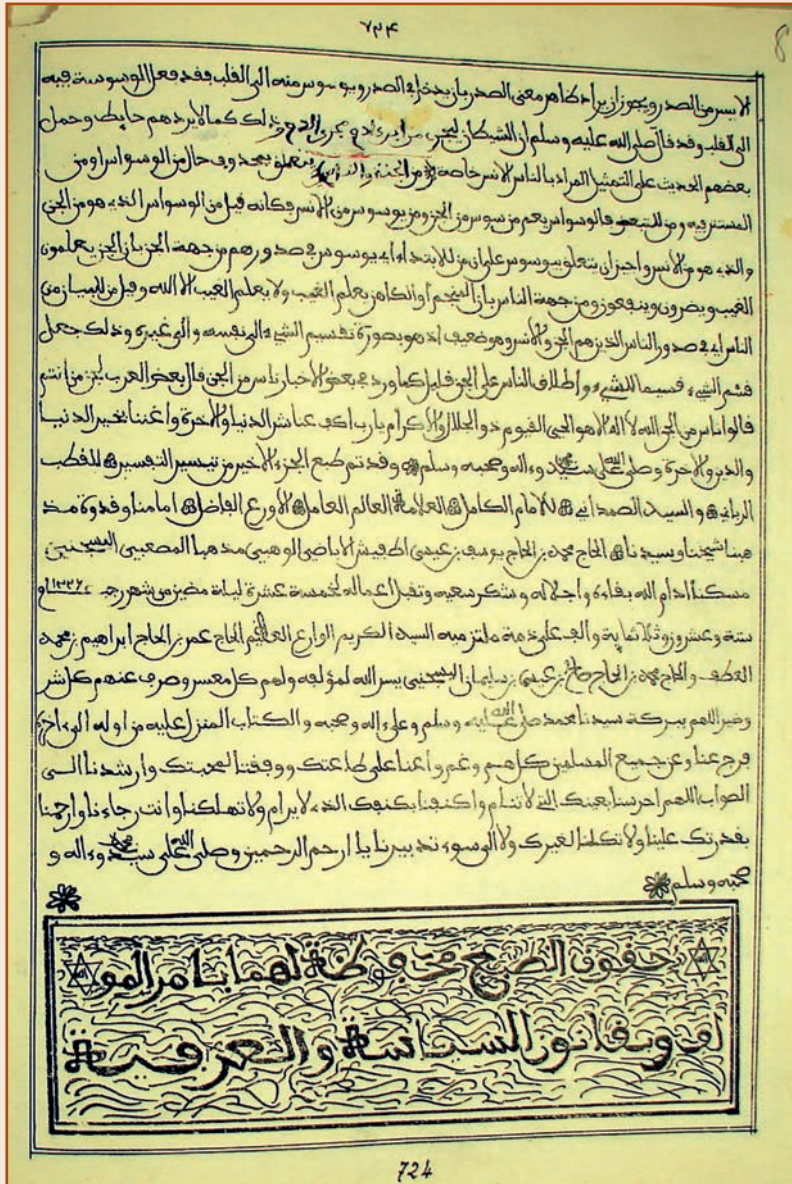 ٧٢٤
8
لا يسر من الصدر ويجوز أن يراد ظاهر معنى الصدر بان يدخل في الصدر ويوسوس منه الى القلب فقد فعل الوسوسة فيه
الى القلب وقد قال صلى الله عليه وسلم ان الشيطان ليجري من ابن ءادم مجرى الدم وذلك كما لا يردهم حايط وحمل
بعضهم الحديث على التمثيل المراد بالناس الانس خاصة من الجنة والناس يتعلق بمحذوف حال من الوسواس او من
المستتر فيه ومن للتبعيض فالوسواس يعم من يوسوس من الجن ومن يوسوس من الانس فكانه قيل من الوسواس الذي هو من الجن
والذي هو من الانس واجيز ان يتعلق بيوسوس على ان من للابتداء اي يوسوس في صدورهم من جهة الجن بان الجن يعلمون
الغيب ويضرون وينفعون ومن جهة الناس بان المنجم او الكاهن يعلم الغيب ولا يعلم الغيب الا الله وقيل من للبيان من
الناس اي في صدور الناس الذين هم الجن والانس وهو ضعيف اذ هو بصورة تقسيم الشيء الى نفسه والى غيره وذلك جعل
قسم الشيء قسيما للشيء واطلاق الناس على الجن قليل كما ورد في بعض الاخبار ناس من الجن قال بعض العرب لجن من انتم
قالوا اناس من الجن الله لا اله الا هو الحي القيوم ذو الجلال والاكرام يا رب اكف عنا شر الدنيا والاخرة واغننا بخير الدنيا
والدين والاخرة وصلى الله على سيدنا محمد وءاله وصحبه وسلم وقد تم طبع الجزء الاخير من تيسير التفسير للقطب
الرباني والسيد الصمداني للامام الكامل العلامة العالم العامل الاورع الفاضل امامنا وقدوة مذ
هبنا شيخنا وسيدنا الحاج محمد بن الحاج يوسف بن عيسى اطفيش الاباضي الوهبي مذهبا المصعبي اليسجنيي
مسكنا ادام الله بقاءه واجلاله وشكر سعيه وتقبل اعماله لخمسة عشرة ليلة مضين من شهر رجب عام ١٣٢٦
ستة وعشرون وثلاثماية والف على ذمة ملتزميه السيد الكريم الوارع العالم الحاج عمر بن الحاج ابراهيم بن محمد
العطف والحاج محمد بن الحاج صالح بن عيسى بن سليمان اليسجني يسر الله لمؤلفه ولهم كل معسر وصرف عنهم كل شر
وضير اللهم ببركة سيدنا محمد صلى الله عليه وسلم وعلى ءاله وصحبه والكتاب المنزل عليه من اوله الى ءاخره
فرج عنا وعن جميع المسلمين كل هم وغم واعنا على طاعتك ووفقنا لمحبتك وارشدنا الى
الصواب اللهم احرسنا بعينك التي لا تنام واكنفنا بكنفك الذي لا يرام ولا تهلكنا وانت رجاءنا وارحمنا
بقدرتك علينا ولا تكلنا لغيرك ولا الى سوء تدبيرنا يا ارحم الرحمين وصلى الله على سيدنا محمد وءاله و
صحبه وسلم
حقوق الطبع محفوظة لهما بامر المو
لف وبقانون السياسة والعرفية
724